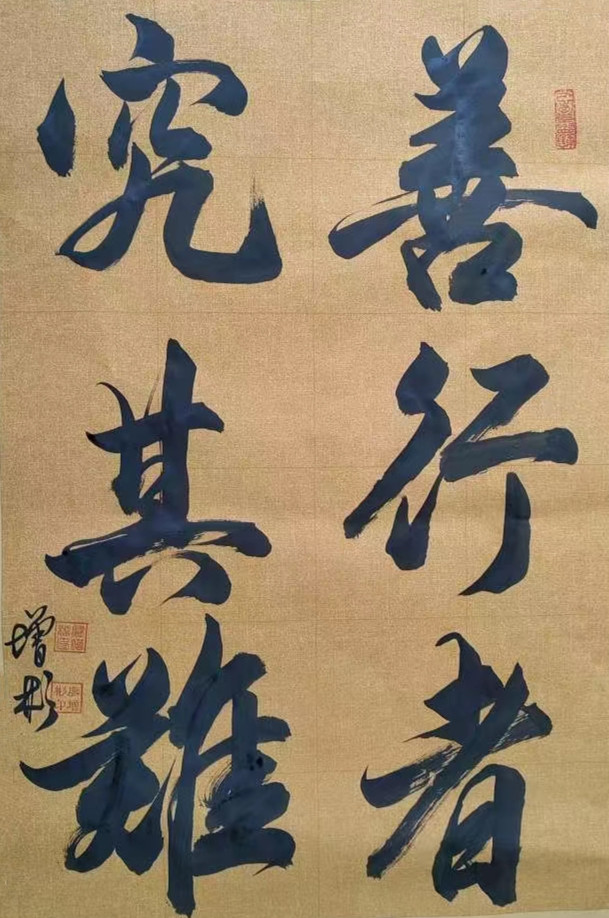 善行者
究其難
增彬